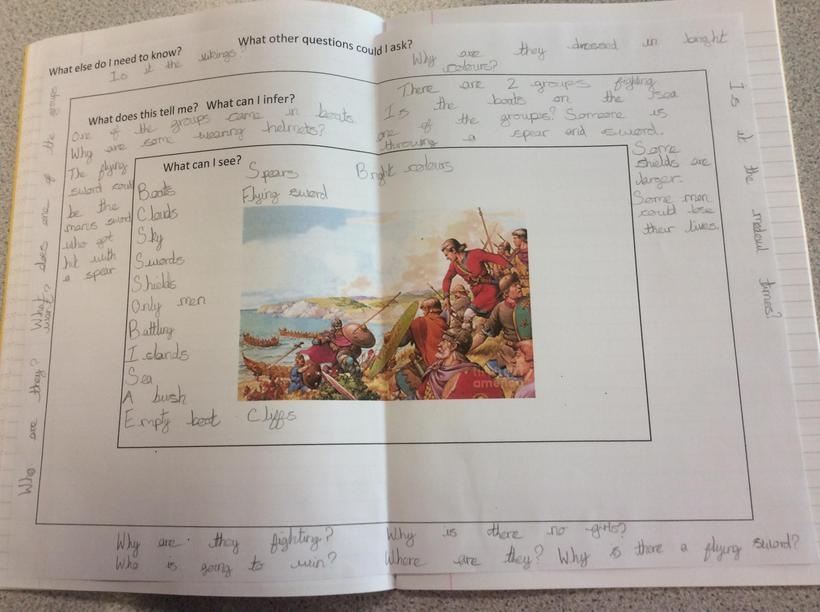 What else do I need to know?
What other questions could I ask?
Is it the vikings?
Why are they dressed in bright
colours?
What does this tell me? What can I infer?
One of the groups came in boats.
Why are some wearing helmets?
The flying
sword could
be the
mans sword
who got
hit with
a spear
There are 2 groups fighting
Is the boats on the sea
one of the groups? Someone is
throwing a spear and sword.
Some
shields are
larger.
Some men
could lose
their lives.
What can I see?
Spears
Bright colours
Flying sword
Boats
Clouds
Sky
Swords
Shields
Only men
Battling
Islands
Sea
A bush
Empty boat
Cliffs
Who are they? What does one of the groups
want?
Is it the times?
Why are they fighting?
Who is going to win?
Why is there no girls?
Where are they? Why is there a flying sword?